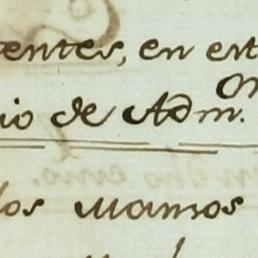 entes, en est
io de Adm.on
los mamos